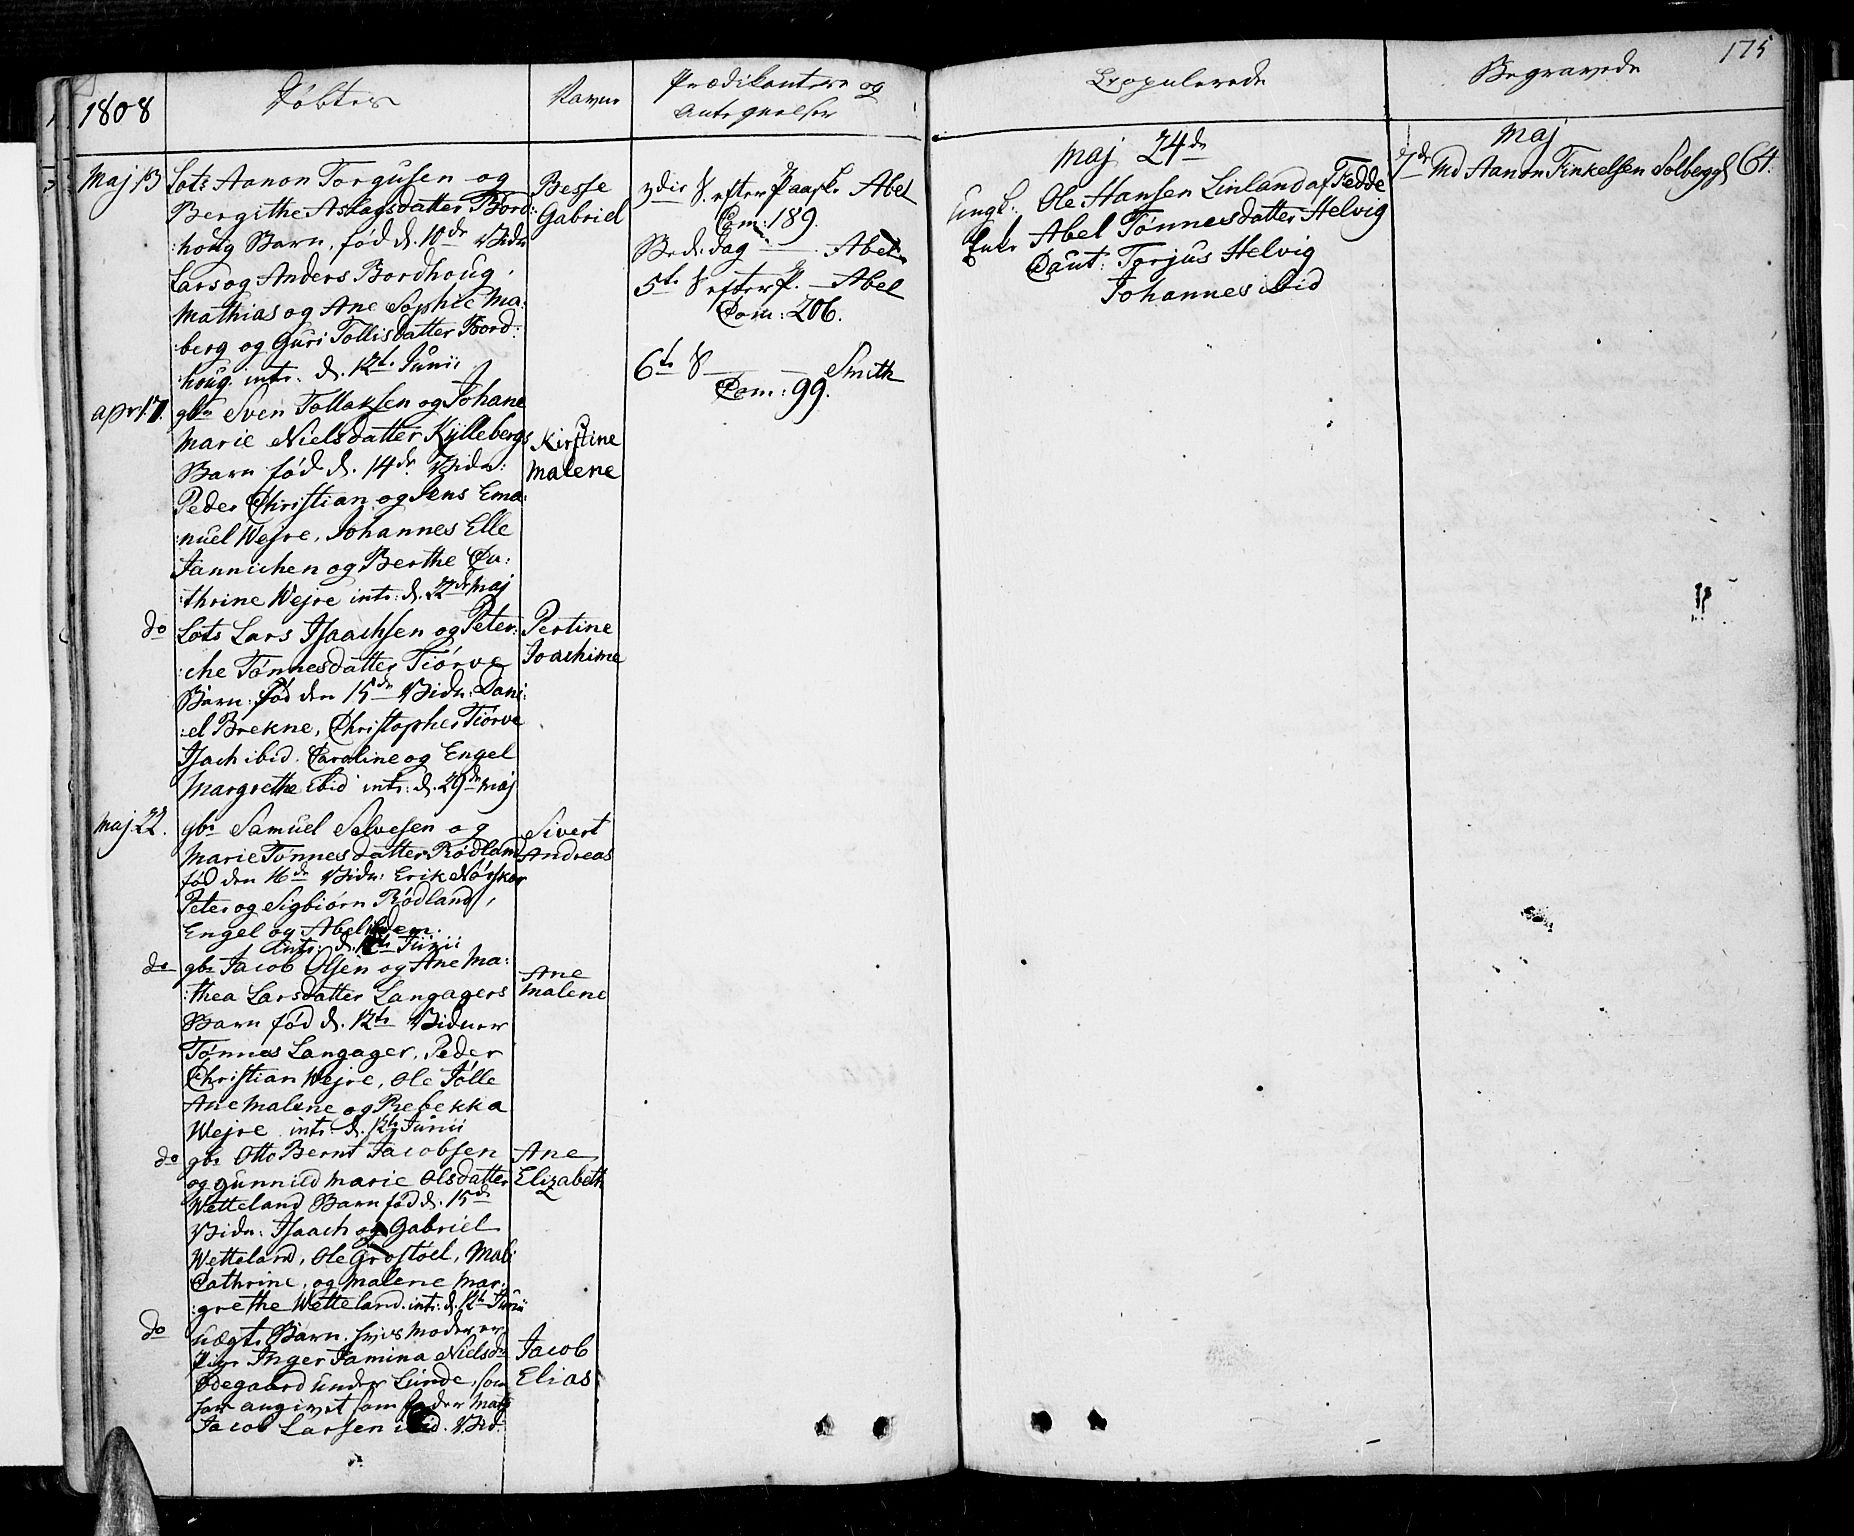 175
1808
Døbte
Navne
Prædikantere og
Antegnelser
Copulerede
Begravede
Maj 13
Lots Aanon Torgusen og
Bergithe Aslagsdatter Bord:
:houg Barn, fød d. 10de Vidn
Lars og Anders Bordhoug,
Mathias og Ane Sophie Ma:
berg og Guri Tollisdatter Bord:
:houg. intr. d. 12te Junii
Besse
Gabriel
apr 17.
gbr Sven Tollaksen og Johane
Marie Nielsdatter Kyllebergs
Barn fød d. 14de Vidn:
Peder Christian og Jens Ema:
:nuel Wejre, Johannes Elle
Jannichen og Berthe Ca:
:thrine Wejre intr: d. 22de Maj
Kirstine
Malene
do
Lots Lars Isaachsen og Peter:
:che Tønnesdatter Tiórve
Barn: fød den 15de Vidn: Dani:
:el Brekne, Christopher Tiórve
Isach ibid. Caroline og Engel
Margrethe ibid intr: d. 29de Maj
Pertine
Joachime
Maj 22.
gbr Samuel Salvesen og
Marie Tønnesdatter Rødland
fød den 16de Vidn: Erik Nórskov
Peter og Sigbiørn Rødland,
Engel og Abel Idem.
intr: d. 12te Junii
Sivert
Andreas
do
gbr Jacob Olsen og Ane Ma:
:thea Larsdatter Langagers
Barn fød d. 12te Vidner
Tønnes Langager, Peder
Christian Wejre, Ole Jølle
Ane Malene og Rebekka
Wejre intr. d. 12te Junii
Ane
Malene
do
gbr Otto Bernt Jacobsen
og Gunnild Marie Olsdatter
Wetteland Barn fød d. 15de
Vidn: Isaach og Gabriel
Wetteland, Ole Grostøel, Mali
Cathrine, og Malene Mar:
:grethe Wetteland. intr: d. 12te Junii
Ane
Elizabeth
do
uægte Barn. hvis Moder er
Pige Inger Jamina Nielsd
Ødegaard under Lunde, som
har angivet som Fader Mats
Jacob Larsen ibid. Vid:
Jacob
Elias
3die S. efter Paaske Abel
Com: 189.
Bededag — Abel
5te S efter P. — Abel
Com: 206.
6te S — — Smith
Com: 99.
Maj 24de
Ungk: Ole Hansen Linland af Fedde
Enke Abel Tønnesdatter Helvig
Caut: Torjus Helvig
Johannes ibid
Maj
7de Md Aanon Finkelsen Solbergs 64.